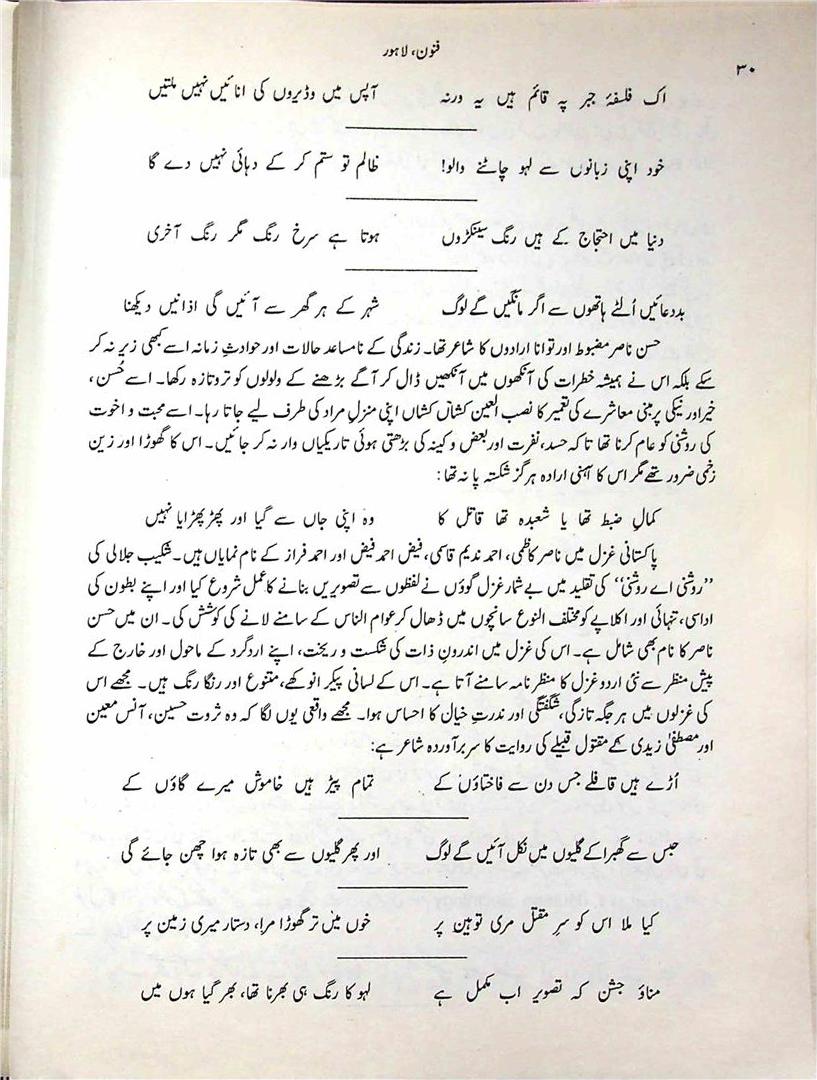 فنون، لاہور
۳۰
اک فلسفۂ جبر پہ قائم ہیں یہ ورنہ آپس میں وڈیروں کی انائیں نہیں ملتیں
خود اپنی زبانوں سے لہو چاٹنے والو! ظالم تو ستم کر کے دہائی نہیں دے گا
دنیا میں احتجاج کے ہیں رنگ سینکڑوں ہوتا ہے سرخ رنگ مگر رنگ آخری
بددعائیں اُلٹے ہاتھوں سے اگر مانگیں گے لوگ شہر کے ہر گھر سے آئیں گی اذانیں دیکھنا
حسن ناصر مضبوط اور توانا ارادوں کا شاعر تھا۔ زندگی کے نامساعد حالات اور حوادثِ زمانہ اسے کبھی زیر نہ کر
سکے بلکہ اس نے ہمیشہ خطرات کی آنکھوں میں آنکھیں ڈال کر آگے بڑھنے کے ولولوں کو تروتازہ رکھا۔ اسے حُسن،
خیر اور نیکی پر مبنی معاشرے کی تعمیر کا نصب العین کشاں کشاں اپنی منزلِ مراد کی طرف لیے جاتا رہا۔ اسے محبت و اخوت
کی روشنی کو عام کرنا تھا تاکہ حسد، نفرت اور بعض و کینہ کی بڑھتی ہوئی تاریکیاں وار نہ کر جائیں۔ اس کا گھوڑا اور زین
زخمی ضرور تھے مگر اس کا آہنی ارادہ ہرگز شکستہ پا نہ تھا:
کمالِ ضبط تھا یا شعبدہ تھا قاتل کا وہ اپنی جاں سے گیا اور پھڑپھڑایا نہیں
پاکستانی غزل میں ناصر کاظمی، احمد ندیم قاسمی، فیض احمد فیض اور احمد فراز کے نام نمایاں ہیں۔ شکیب جلالی کی
”روشنی اے روشنی“ کی تقلید میں بے شمار غزل گوؤں نے لفظوں سے تصویریں بنانے کا عمل شروع کیا اور اپنے بطون کی
اداسی، تنہائی اور اکلاپے کو مختلف النوع سانچوں میں ڈھال کر عوام الناس کے سامنے لانے کی کوشش کی۔ ان میں حسن
ناصر کا نام بھی شامل ہے۔ اس کی غزل میں اندرونِ ذات کی شکست و ریخت، اپنے اردگرد کے ماحول اور خارج کے
پیش منظر سے نئی اردو غزل کا منظر نامہ سامنے آتا ہے۔ اس کے لسانی پیکر انوکھے، متنوع اور رنگا رنگ ہیں۔ مجھے اس
کی غزلوں میں ہر جگہ تازگی، شگفتگی اور ندرتِ خیال کا احساس ہوا۔ مجھے واقعی یوں لگا کہ وہ ثروت حسین، آنس معین
اور مصطفیٰ زیدی کے مقتول قبیلے کی روایت کا سربرآوردہ شاعر ہے:
اُڑے ہیں قافلے جس دن سے فاختاؤں کے تمام پیڑ ہیں خاموش میرے گاؤں کے
حبس سے گھبرا کے گلیوں میں نکل آئیں گے لوگ اور پھر گلیوں سے بھی تازہ ہوا چھن جائے گی
کیا ملا اس کو سرِ مقتل مری توہین پر خوں میں تر گھوڑا مرا، دستار میری زمین پر
مناؤ جشن کہ تصویر اب مکمل ہے لہو کا رنگ ہی بھرنا تھا، بھر گیا ہوں میں